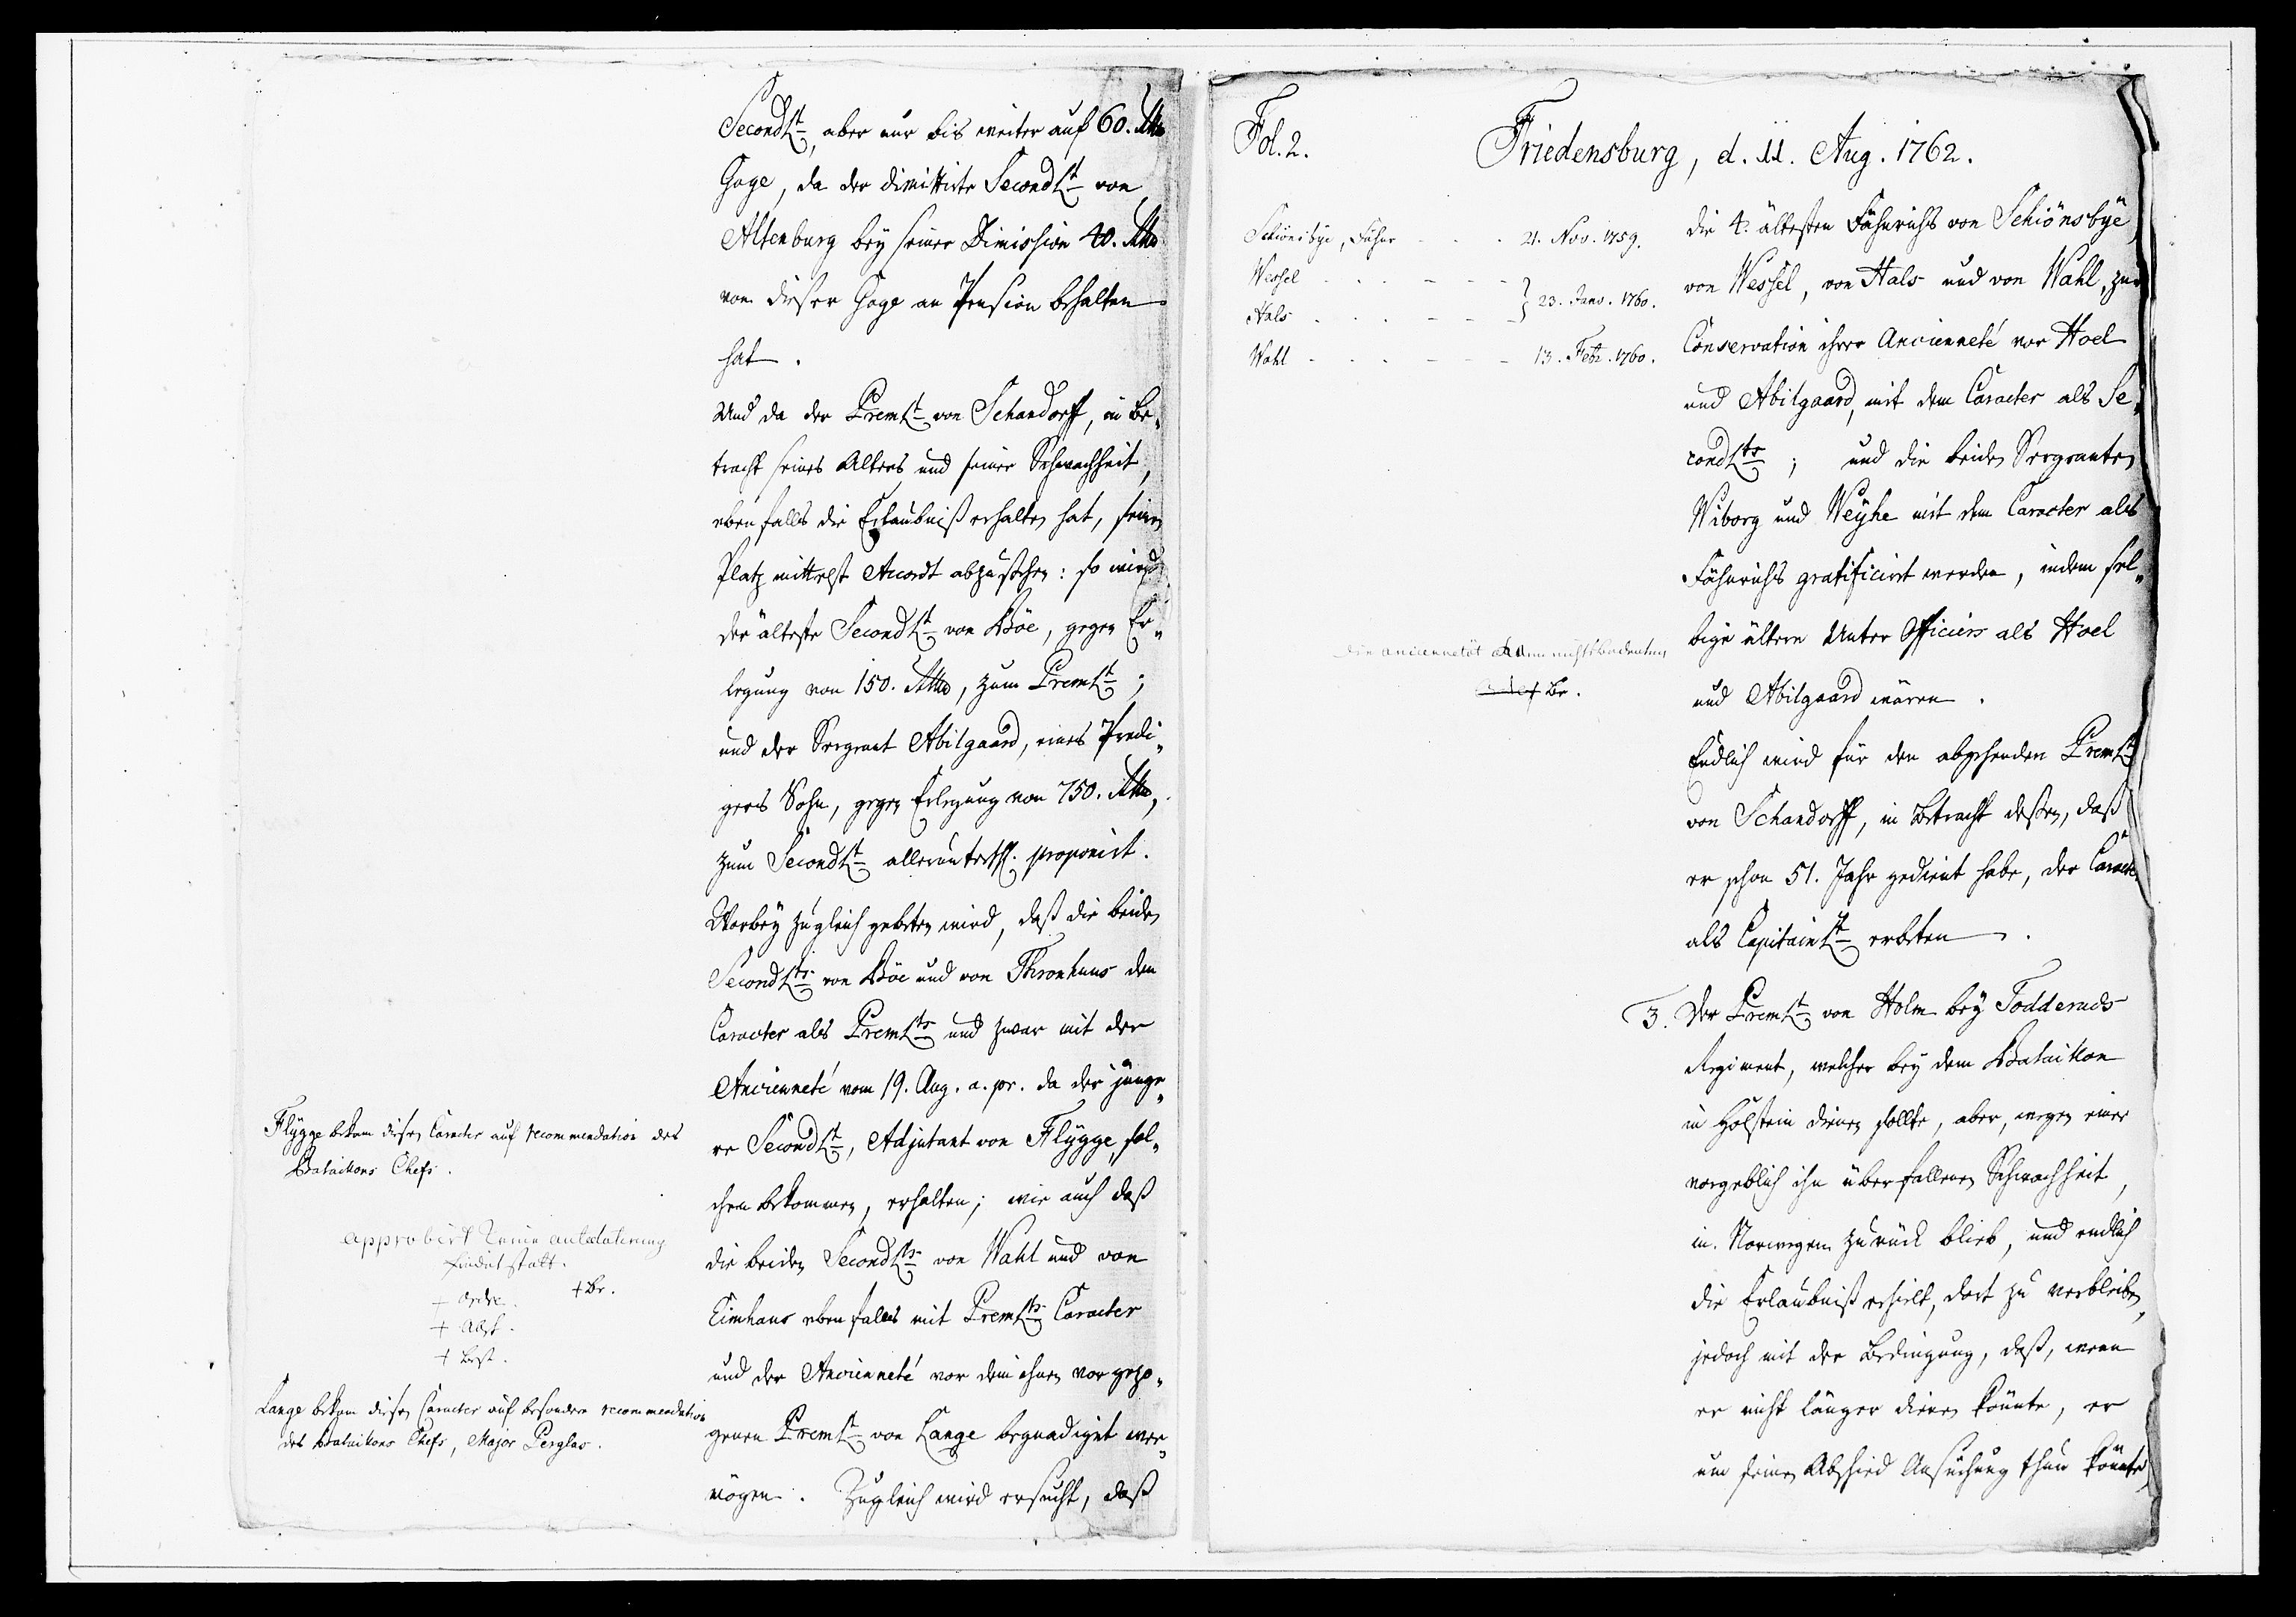 SecondLt, aber nur bis weiter auf 60. Rthlr
Gage, da der dimittirte SecondLt von
Altenburg bey seiner Dimission 40. Rthlr
von dieser Gage an Pension behalten
hat.
Und da der PremLt von Schandorff, in Be„
tracht seines Alters und seiner Schwachheit,
ebenfalls die Erlaubniß erhalten hat, seinen
Platz mittelst Accordt abzustehen: so wird
der älteste SecondLt von Böe, gegen Er„
legung von 150. Rthlr, zum PremLt;
und der Sergeant Abilgaard, eines Predi„
gers Sohn, gegen Erlegung von 750. Rthlr,
zum SecondLt allerunterth. proponirt.
Worbey zugleich gebeten wird, daß die beiden
SecondLts von Böe und von Thronhuus den
Caracter als PremLts und zwar mit der
Ancienneté vom 19. Aug. a. pr. da der jünge„
re SecondLt, Adjutant von Flÿgge, sol„
chen bekommen, erhalten; wie auch daß
die beiden SecondLts von Wahl und von
Eimhaus ebenfalls mit PremLts Caracter
und der Ancienneté vor dem ihnen vorgezo„
genen PremLt von Lange begnadiget wer„
mögen. Zugleich wird ersucht, daß
Flÿgge bekam diesen Caracter auf recommendation des
Bataillons Chefs.
approbirt keine antedatirung
findet statt.
+ Ordre. + Br.
+ Absch.
+ Best.
Lange bekam diesen Caracter auf besondere recommendation
des Bataillons Chefs, Major Perglas.
Fol. 2.
Friedensburg, d. 11. Aug. 1762.
Schiönsbÿe, Fähnr - - - 21. Nov. 1759.
Wessel - - - - -
Hals - - - - - } 23. Janv. 1760.
Wahl - - - - - 13. Febr. 1760.
die 4. ältesten Fähnrichs von Schiönsbÿe,
von Wessel, von Hals und von Wahl, zur
Conservation ihrer Ancienneté vor Hoel
und Abilgaard, mit dem Caracter als Se„
condLts; und die beiden Sergeanten
Wiborg und Weÿhe mit dem Caracter als
Fähnrichs gratificirt werden, indem sel„
bige ältere Unter Officiers als Hoel
und Abilgaard wären.
die ancienneté kann nicht bedeuten
Br.
Endlich wird für den abgehenden PremLt
von Schandorff, in Betracht dessen, daß
er schon 51. Jahr gedient habe, der Caracter
als CapitainLt erbeten.
3. Der PremLt von Holm bey Todderuds
Regiment, welcher bey dem Bataillon
in Holstein dienen sollte, aber, wegen einer
vorgeblich ihn überfallenen Schwachheit,
in Norwegen zurück blieb, und endlich
die Erlaubniß erhielt, dort zu verbleiben,
jedoch mit der Bedingung, daß, wenn
er nicht länger dienen könnte, er
um seinen Abschied Ansuchung thun könnte,